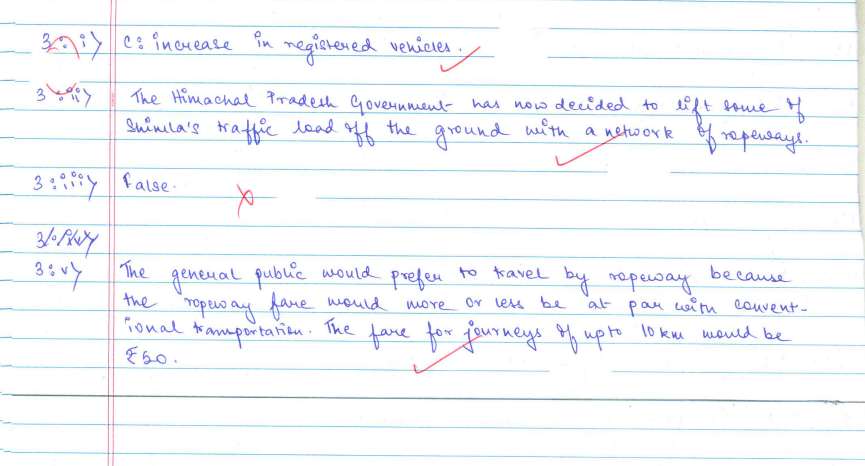 3:i) C: increase in registered vehicles.
3:ii) The Himachal Pradesh Government has now decided to lift some of
Shimla's traffic load off the ground with a network of ropeways.
3:iii) False.
3:v) The general public would prefer to travel by ropeway because
the ropeway fare would more or less be at par with convent-
ional transportation. The fare for journeys of upto 10 km would be
₹50.